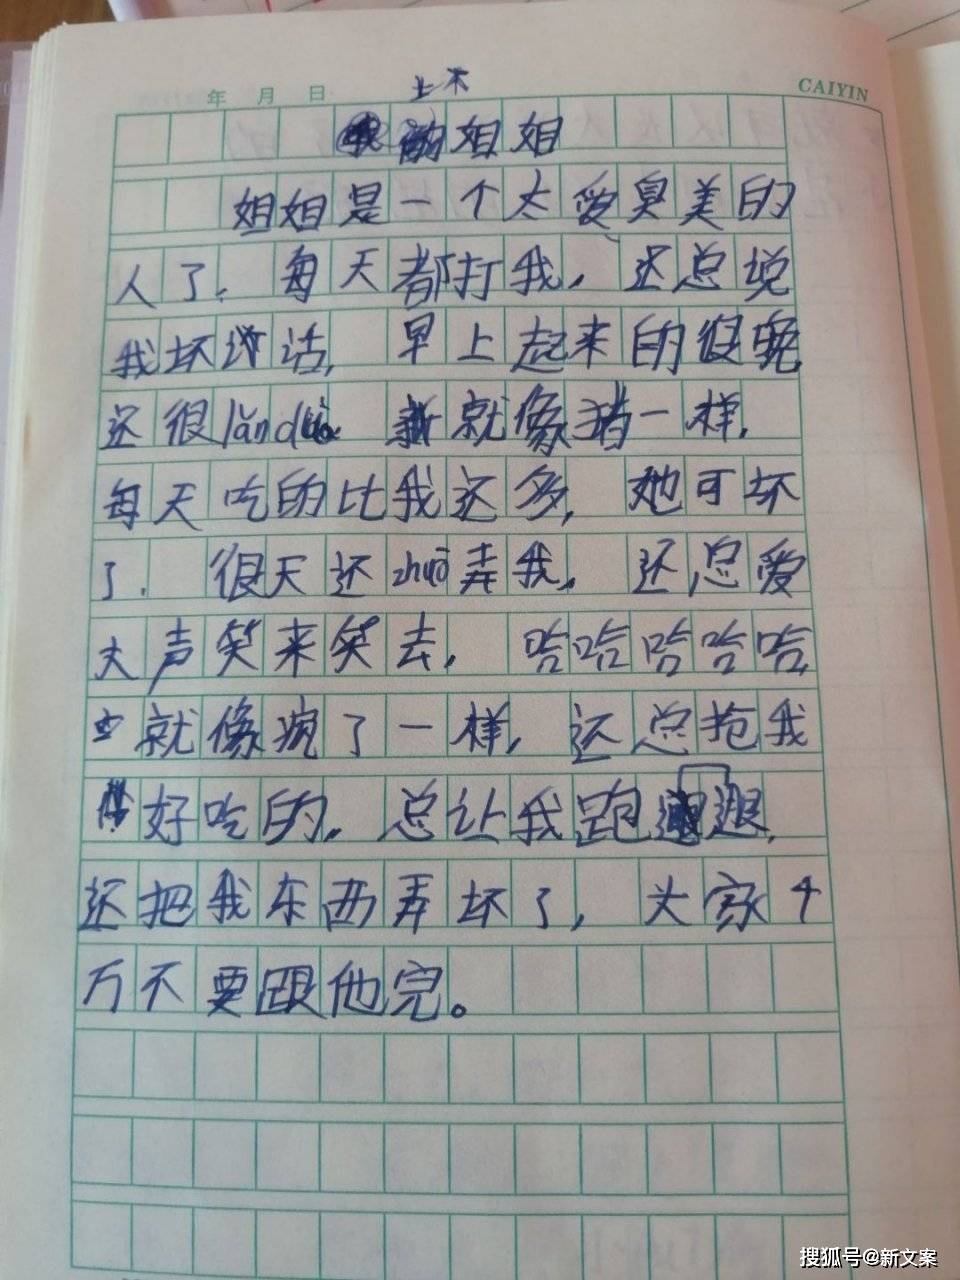 年 月 日 土木 CAIYIN
的姐姐
姐姐是一个太爱臭美的
人了. 每天都打我, 还总说
我坏话, 早上起来的很晚,
还很lǎn 就像猪一样,
每天吃的比我还多, 她可坏
了. 很天还zhuō弄我. 还总爱
大声笑来笑去, 哈哈哈哈哈,
就像疯了一样, 还总抢我
好吃的. 总让我跑 ,
还把我东西弄坏了, 大家千
万不要跟他完。
搜狐号@新文案